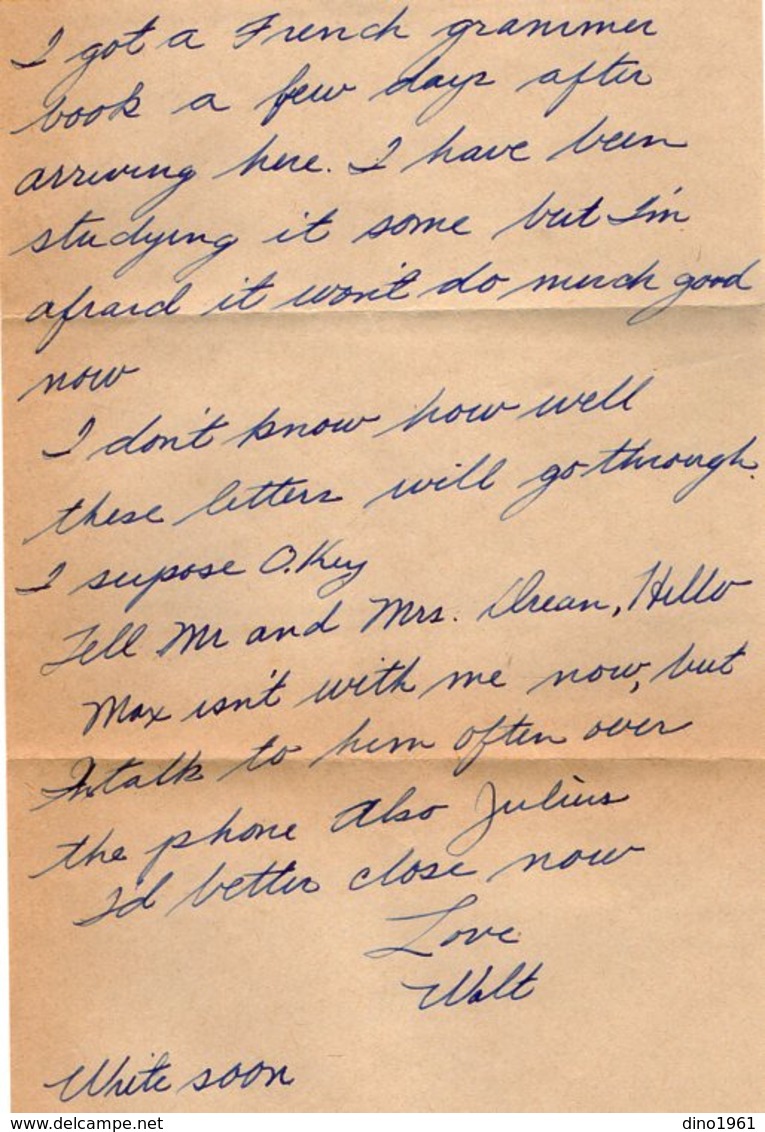 I got a French grammer
book a few days after
arriving here. I have been
studying it some but I'm
afraid it won't do much good
now
I don't know how well
these letters will go through.
I supose O.Key
Tell Mr and Mrs. Drean, Hello
Max isn't with me now, but
I talk to him often over
the phone Also Julius
I'd better close now
Love
Walt
Write soon
www.delcampe.net
dino1961